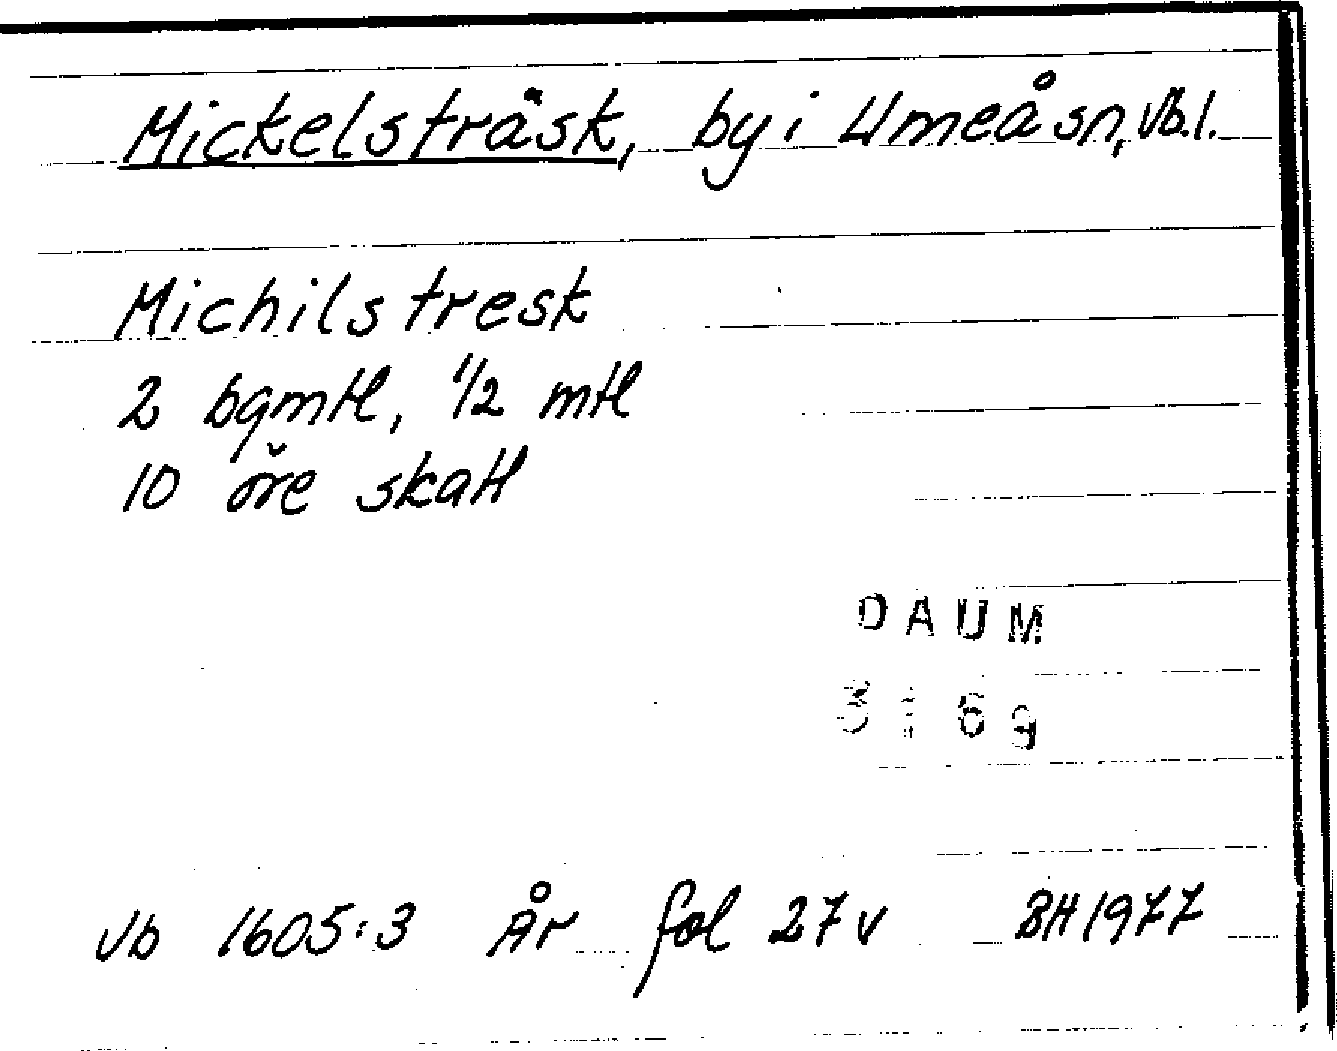 Mickelsträsk, by i Umeå sn, Vb.l.
Michilstresk
2 bgmtl, 1/2 mtl
10 öre skatt
DAUM
3169
Vb 1605:3 År fol 27v BH 1977